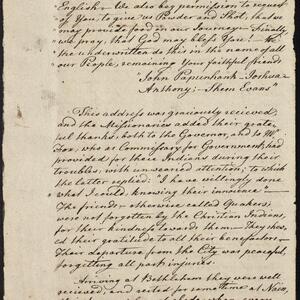 English. We also beg permission to request
of You, to give us Powder and Shot, that we
may provide food in our Journey. Finally
we pray, that God may bless You. We
the underwritten do this in the name of all
our People, remaining Your faithful friends
"John Papunhank. Joshua.
Anthony. Shem Evans"
This address was graciously recieved;
and the Missionaries added their grate
ful thanks, both to the Governor, and to Mr
Fox, who as Commissary for Government, had
provided for these Indians during their
troubles, with unwearied attention; to which
the latter replied: I have willingly done
what I could, knowing their innocence.
The friends, otherwise called Quakers,
were not forgotten by the Christian Indians,
for their kindness towards them. They shew,
ed their gratitude to all their benefactors.
Their departure from the City was peaceful,
forgetting all past injuries.
Arriving at Bethlehem they were well
recieved, and rested for sometime at Nain,